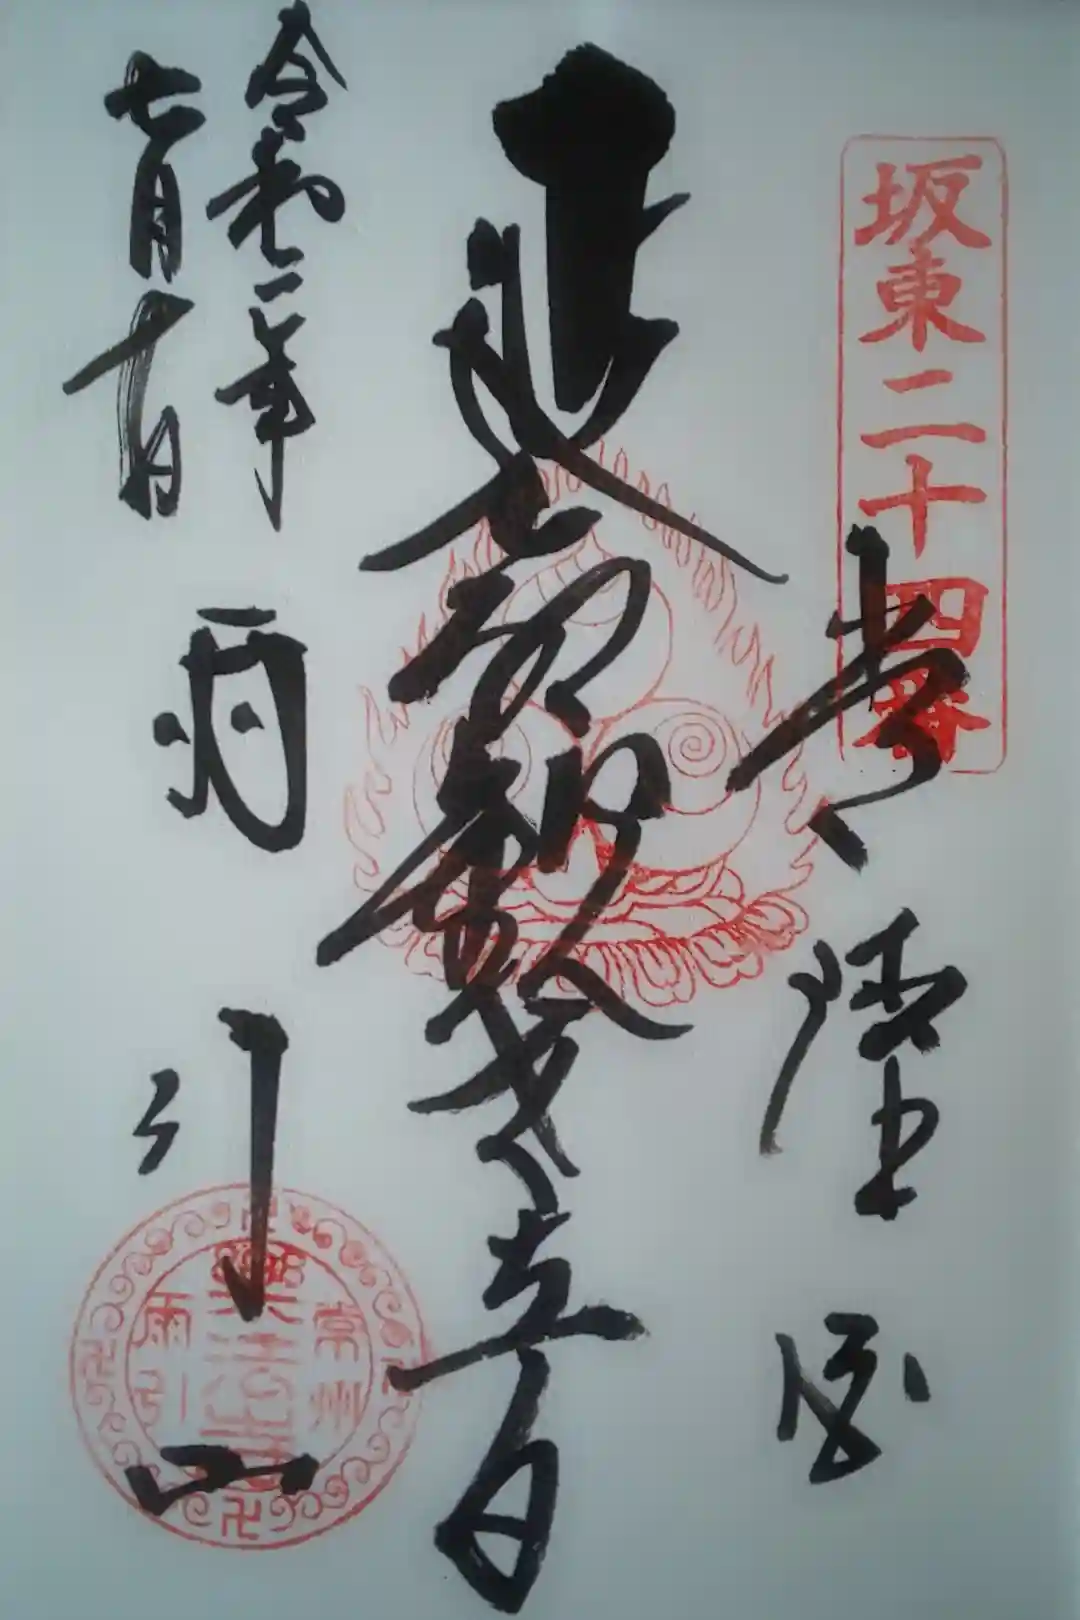 坂東二十四番
常陸國
延命観世音
令和二年
七月十日
雨引山
常州
樂法寺
雨引